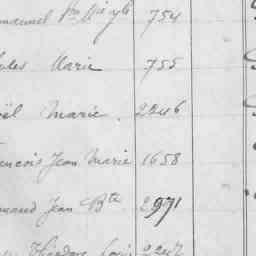 manuel Vve Me 754
Jules Marie 755
oël Marie 2246
ancois Jean Marie 1658
mand Jean Bte 2971
Théodore Louis 2247